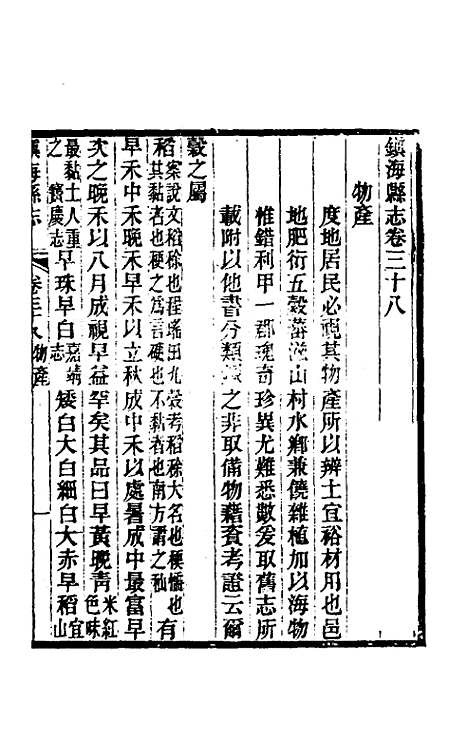 鎮海縣志卷三十八
物產
度地居民必視其物產所以辨土宜裕材用也邑
地肥衍五穀蕃滋山村水鄉兼饒雜植加以海物
惟錯利甲一郡瑰奇珍異尤難悉數爰取舊志所
載附以他書分類之非取備物藉資考證云爾
穀之屬
稻案說文稻稌也程瑤田九穀考稻稌大名也稉㮕也
其黏者也稉之為言硬也不黏者也南方謂之秈有
早禾中禾晚禾早禾以立秋成中禾以處暑成中最富早
次之晚禾以八月成視早益罕矣其品曰早黃晚青米紅
色味
最黏土人重
之寶慶志早珠早白嘉靖
志矮白大白細白大赤早稻宜
山
鎮海縣志
卷三十八物產
一